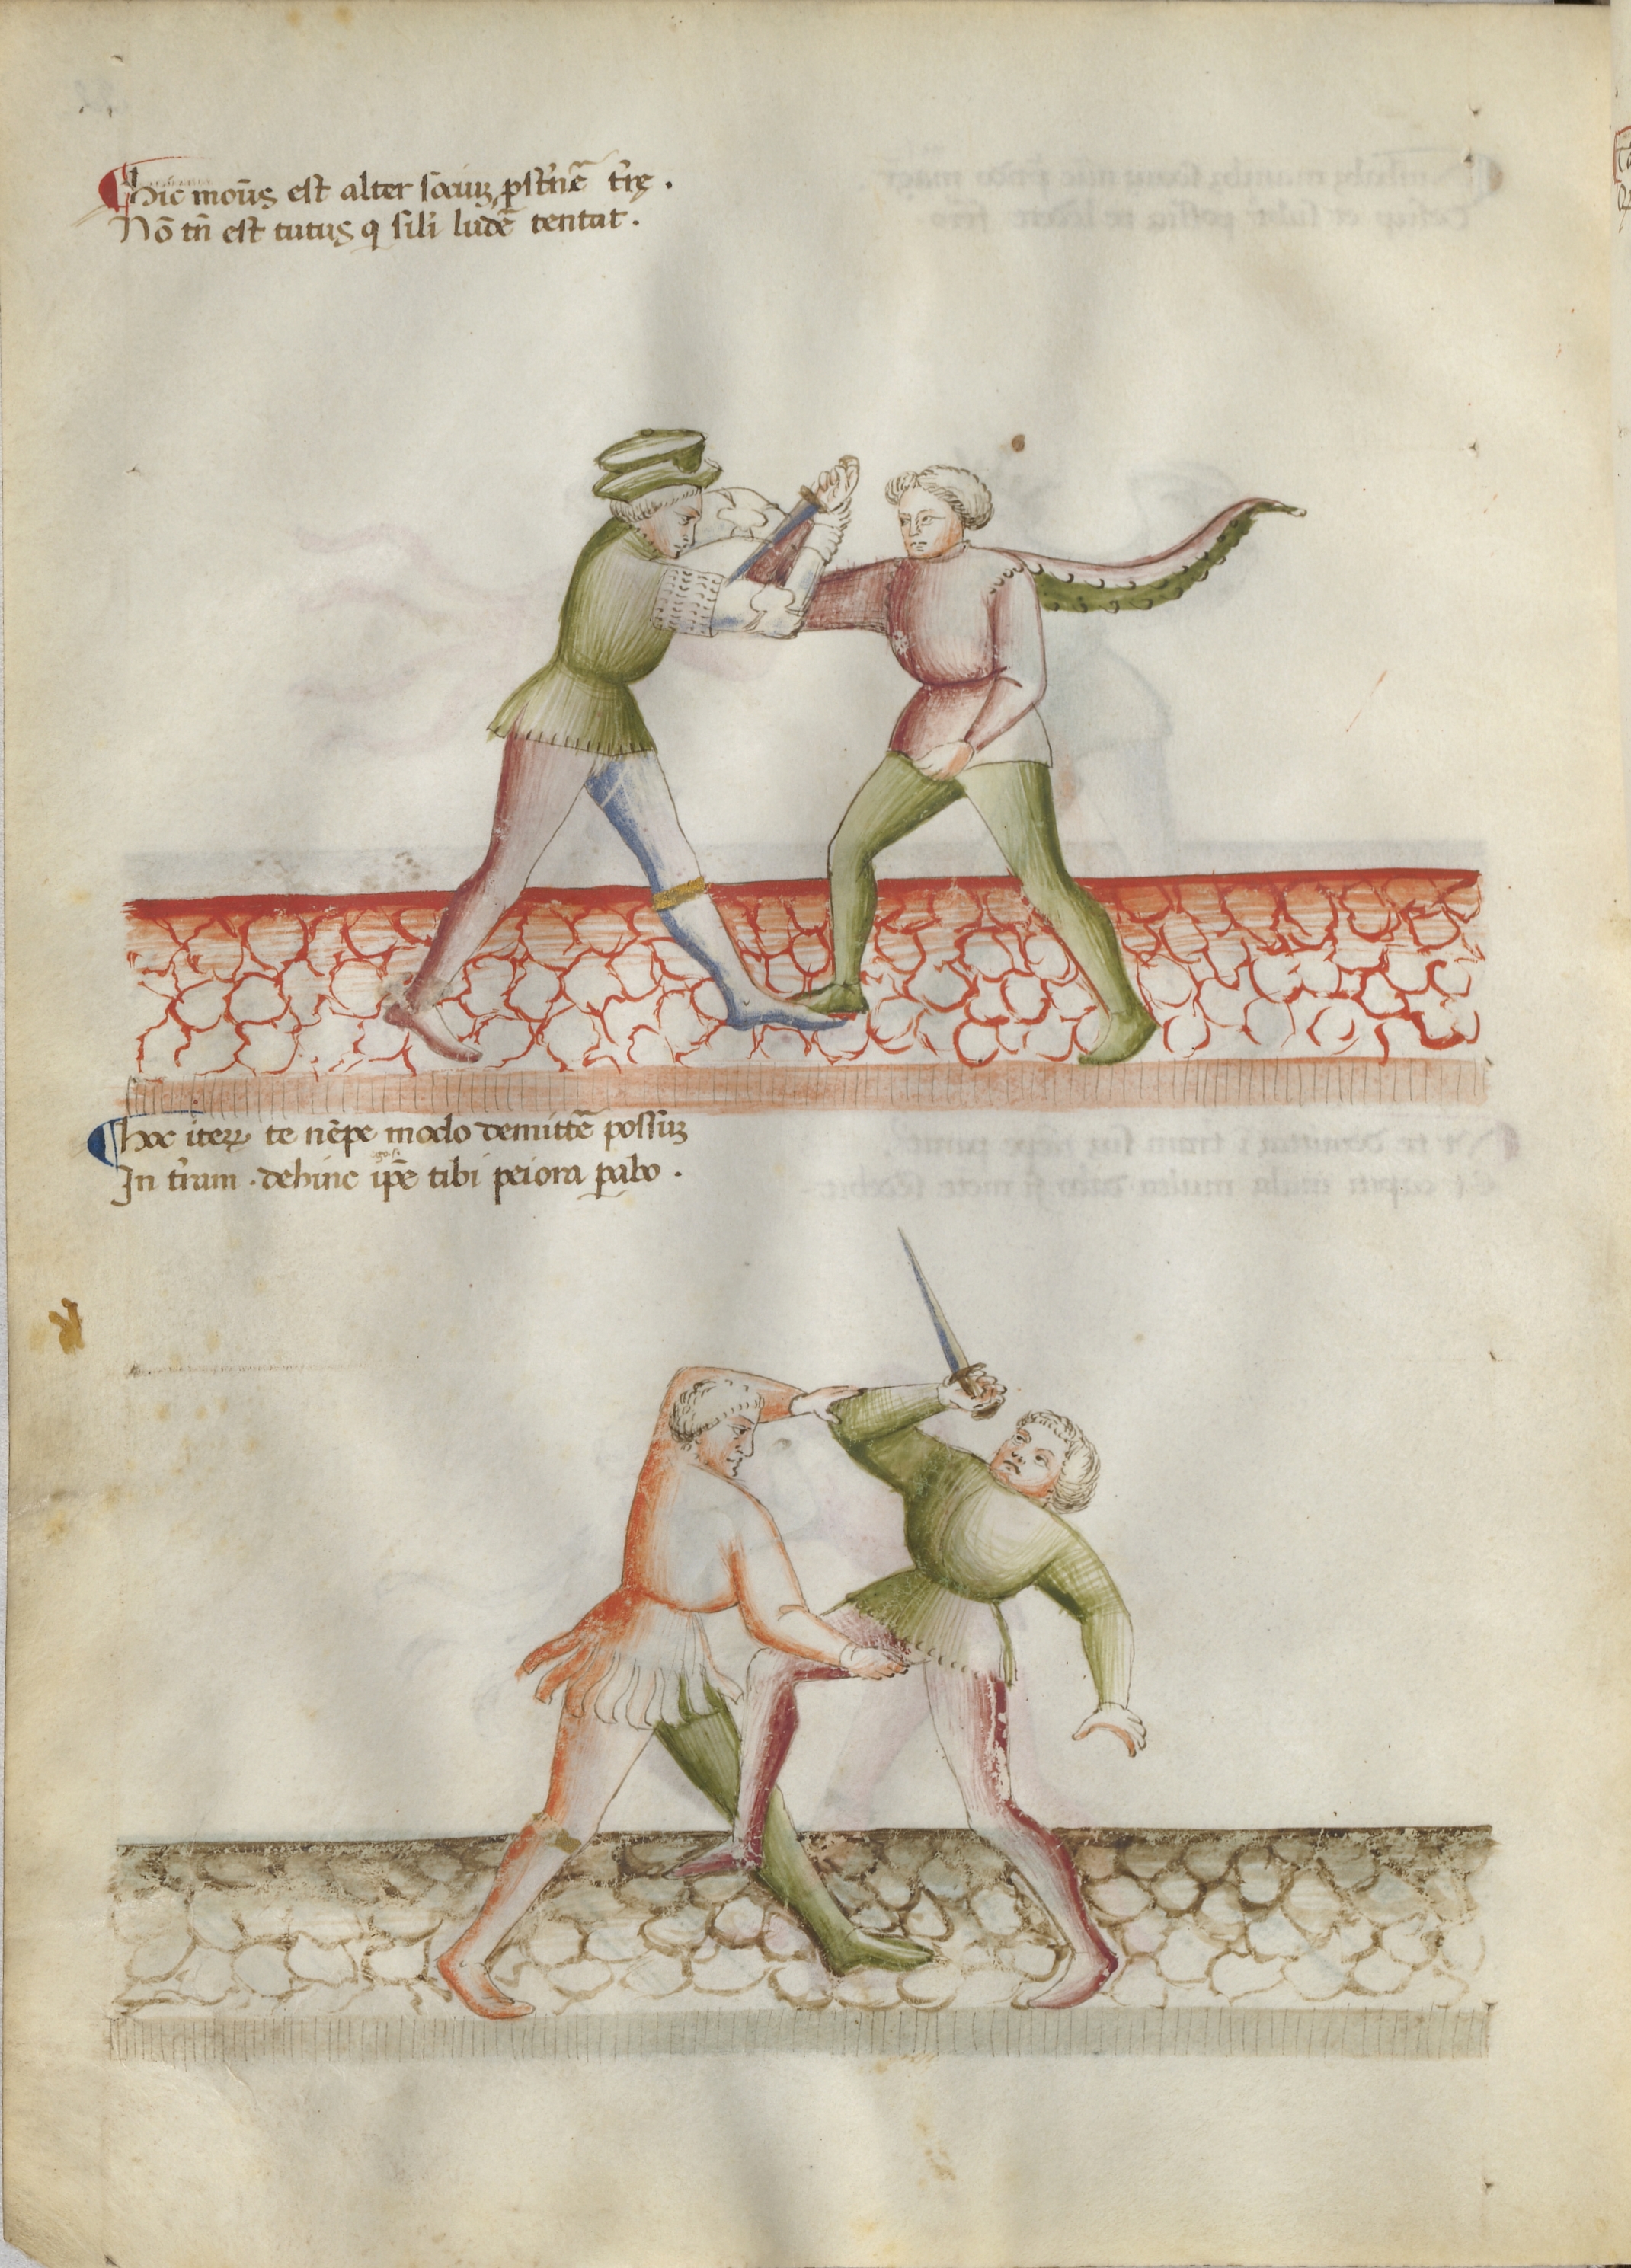 Hic moūs est alter sociuȝ ꝓst̄ne᷒ t̄rę .
Nō tn̄ est tutus q sil̄i ludē tentat .
Hoc iteꝝ te nēpe modo demittē possuȝ
In t̄ram . dehinc ip̄e tibi peiora ꝑabo .